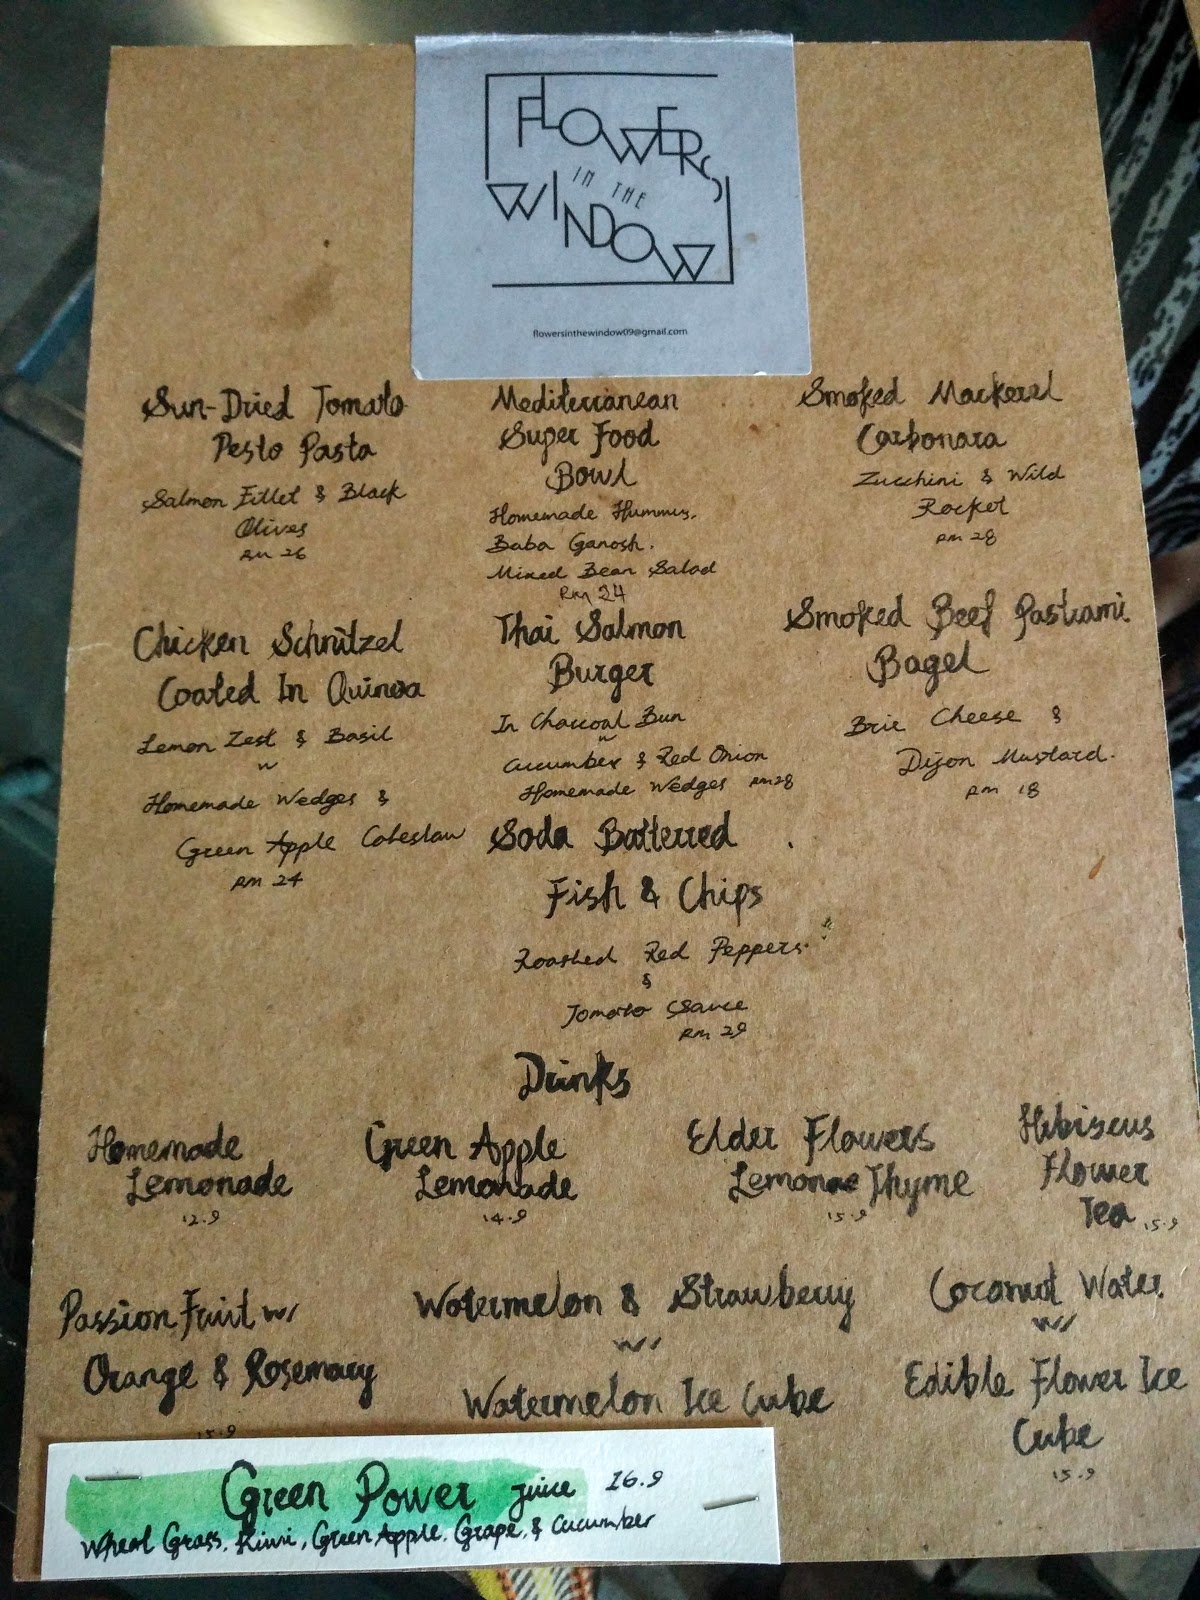 FLOWERS
IN THE
WINDOW
flowersinthewindow09@gmail.com
Sun-Dried Tomato
Pesto Pasta
Salmon Fillet & Black
Olives
RM 26
Mediterranean
Super Food
Bowl
Homemade Hummus,
Baba Ganosh.
Mixed Bean Salad
RM 24
Smoked Mackerel
Carbonara
Zucchini & Wild
Rocket
RM 28
Chicken Schnitzel
Coated In Quinoa
Lemon Zest & Basil
w
Homemade Wedges &
Green Apple Coleslaw
RM 24
Thai Salmon
Burger
In Charcoal Bun
w
Cucumber & Red Onion
Homemade Wedges RM28
Smoked Beef Pastrami
Bagel
Brie Cheese &
Dijon Mustard.
RM 18
Soda Batterred
Fish & Chips
Roasted Red Peppers.
&
Tomato Sauce
RM 29
Drinks
Homemade
Lemonade
12.9
Green Apple
Lemonade
14.9
Elder Flowers
Lemonae Thyme
15.9
Hibiscus
Flower
Tea 15.9
Passion Fruit w/
Orange & Rosemary
15.9
Watermelon & Strawberry
w/
Watermelon Ice Cube
Coconut Water
w/
Edible Flower Ice
Cube
15.9
Green Power Juice 16.9
Wheat Grass, Kiwi, Green Apple, Grape, & Cucumber